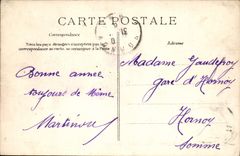 CARTE POSTALE
Correspondance
Adresse
Bonne année
toujours de même
Martineau
Madame Gaudefroy
gare d'Hornoy
Hornoy
Somme